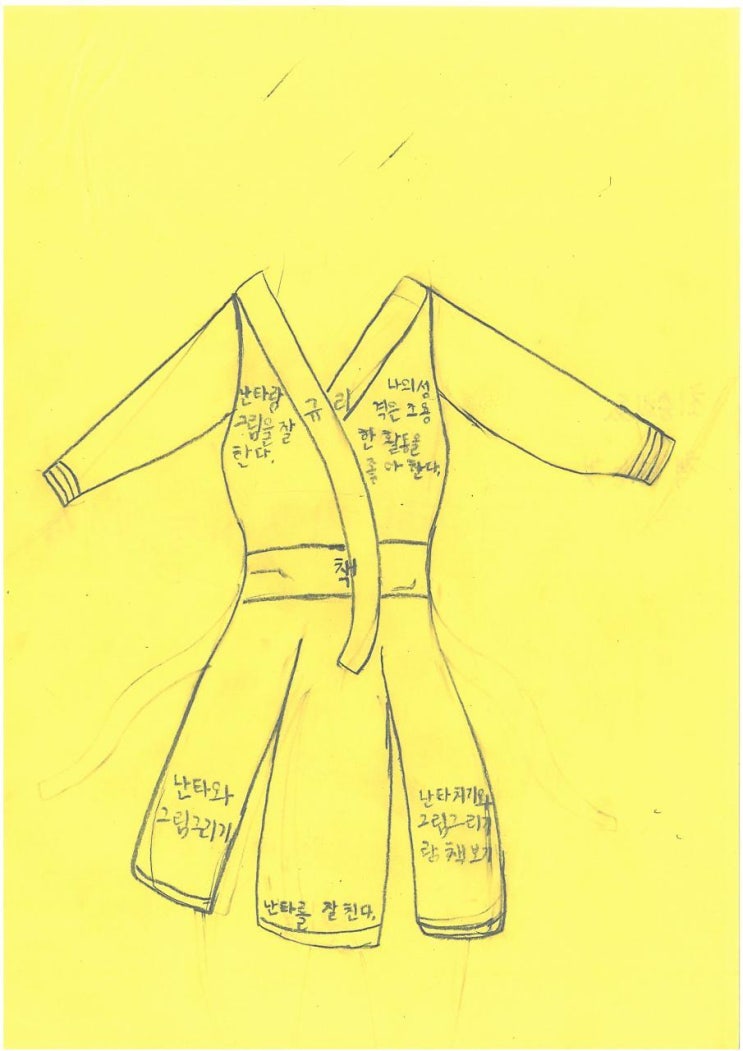 난타랑
그림을 잘
한다.
규리
나의 성
격은 조용
한 활동을
좋아 한다.
책
난타와
그림그리기
난타치기와
그림그리기
랑 책 보기
난타를 잘 친다.